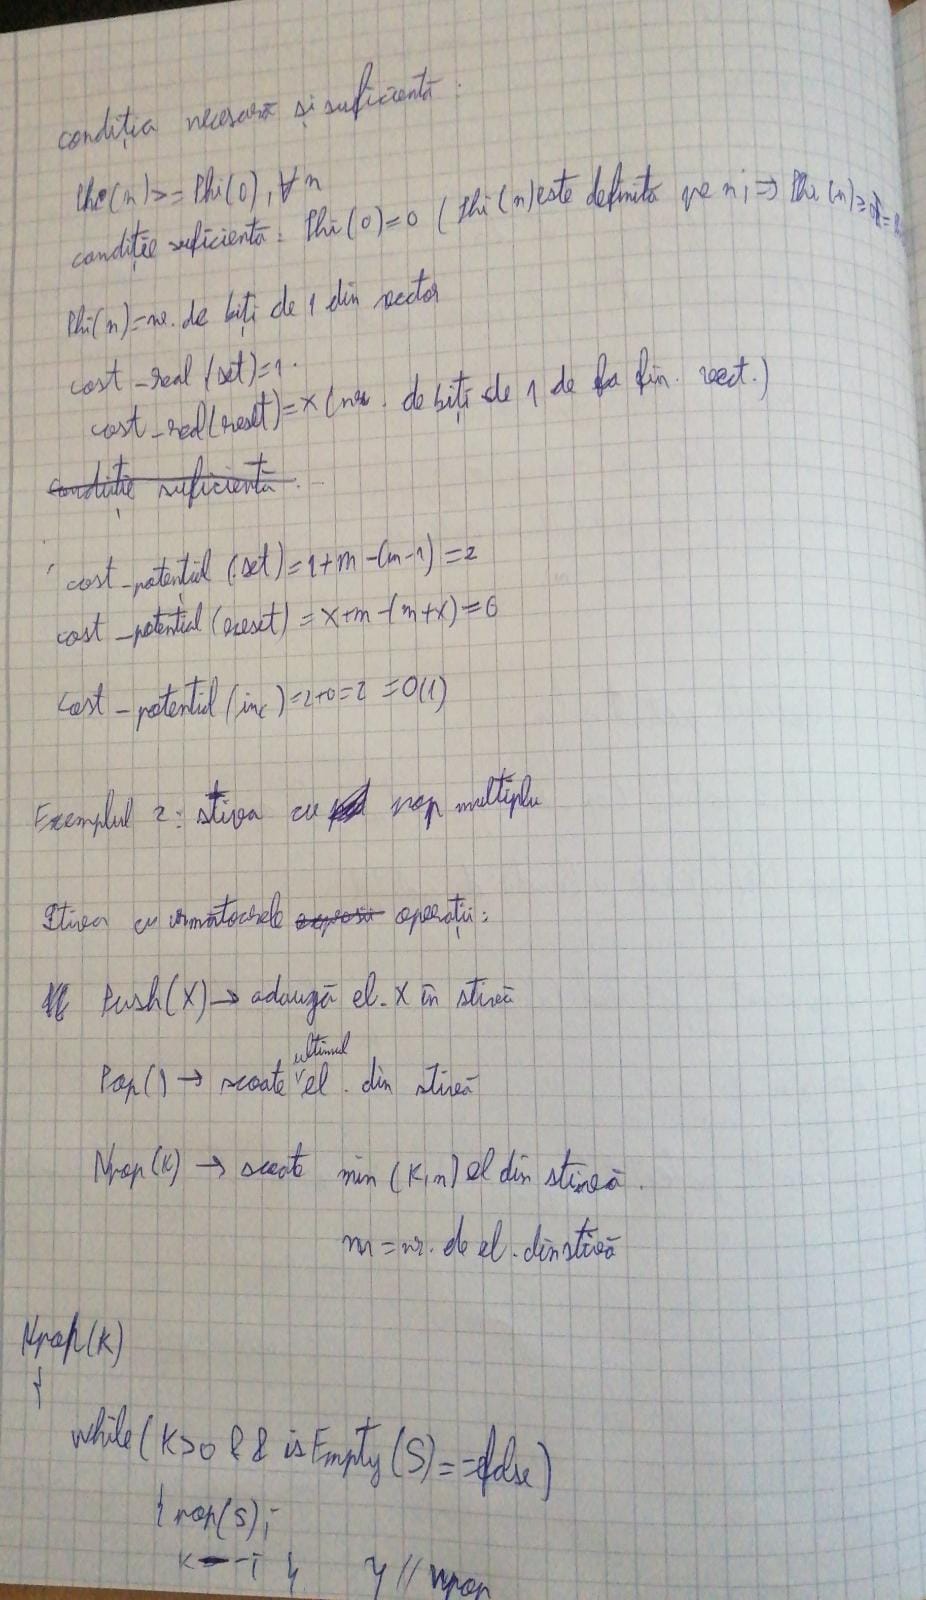 condiția necesară și suficientă:
Phi(n)>=Phi(0), ∀n
condiție suficientă: Phi(0)=0 (Phi(n) este definită pe n; => Phi(n)≥0
Phi(n)=nr. de biți de 1 din vector
cost_real(set)=1.
cost_real(reset)=x(nr. de biți de 1 de la fin. vect.)
condiție suficientă.
cost_potențial (set)=1+m-(m-1)=2
cost_potențial (reset)=x+m-(m+x)=0
cost_potențial (inc)=2+0=2=O(1)
Exemplul 2: stiva cu pop multiplu
Stiva cu următoarele operații:
Push(X)→ adaugă el. X în stivă
Pop()→ scoate ultimul el. din stivă
Npop(K)→ scoate min(K,n) el din stivă.
n=nr. de el. din stivă
Npop(K)
{
while(K>0 && isEmpty(S)==false)
{ pop(S);
K--; } } // npop